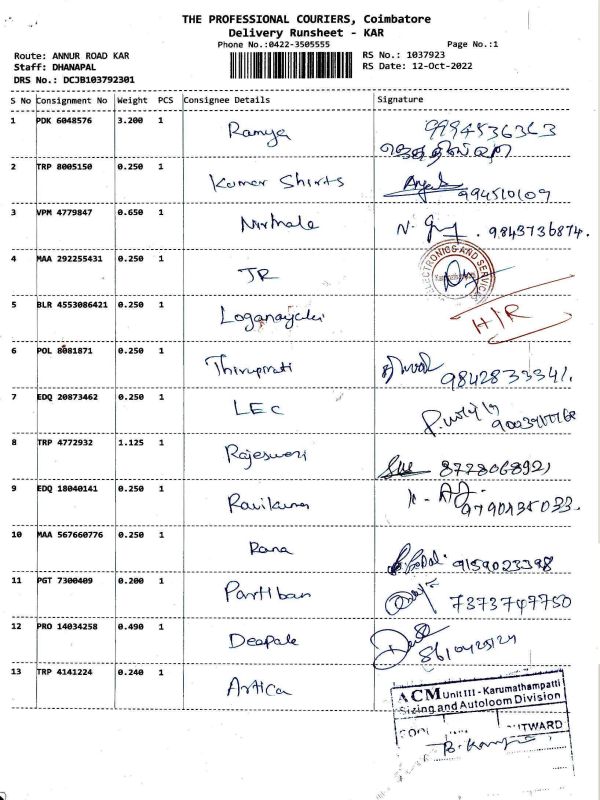 THE PROFESSIONAL COURIERS, Coimbatore
Delivery Runsheet - KAR
Phone No.:0422-3505555 Page No.:1
Route: ANNUR ROAD KAR RS No.: 1037923
Staff: DHANAPAL RS Date: 12-Oct-2022
DRS No.: DCJB103792301
S No Consignment No Weight PCS Consignee Details Signature
1 PDK 6048576 3.200 1 Ramya
2 TRP 8005150 0.250 1 Kumar Shirts 994510109
3 VPM 4779847 0.650 1 Nirmala 9843736874.
4 MAA 292255431 0.250 1 JR ELECTRONICS AND SERVICE
5 BLR 4553086421 0.250 1 Loganayaki H/R
6 POL 8081871 0.250 1 Thirupati 9842833341.
7 EDQ 20873462 0.250 1 LEC
8 TRP 4772932 1.125 1 Rajeswori 872806892)
9 EDQ 18040141 0.250 1 Ravikumar
10 MAA 567660776 0.250 1 Rana 9159023398
11 PGT 7300409 0.200 1 Partiban 7373747750
12 PRO 14034258 0.490 1 Deepak
13 TRP 4141224 0.240 1 Artica
ACM Unit III - Karumathampatti
Sizing and Autoloom Division